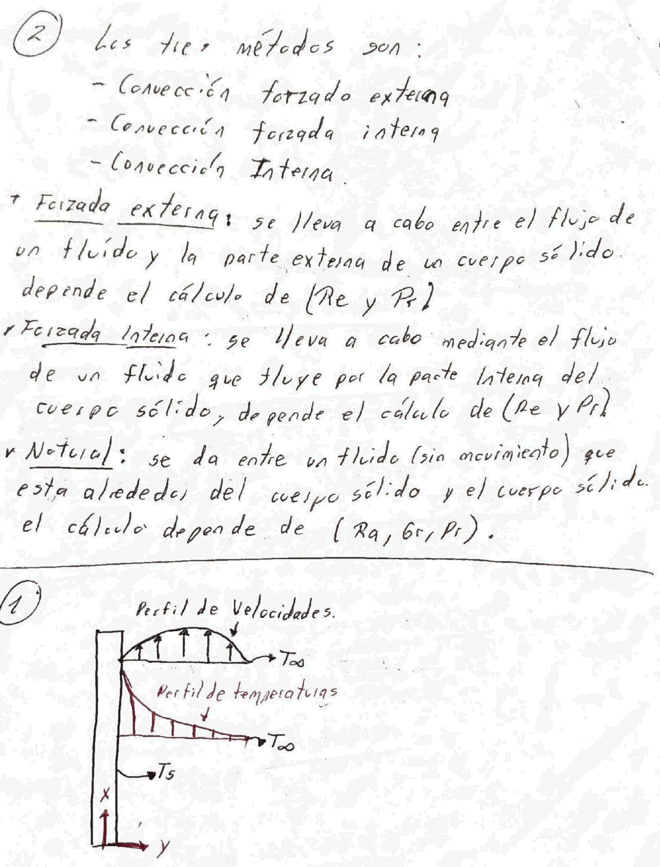 2 Los tres métodos son:
- Convección forzado externa
- Convección forzada interna
- Convección Interna.
* Forzada externa: se lleva a cabo entre el flujo de
un fluído y la parte externa de un cuerpo sólido.
depende el cálculo de (Re y Pr)
* Forzada Interna: se lleva a cabo mediante el flujo
de un fluido que fluye por la parte Interna del
cuerpo sólido, depende el cálculo de (Re y Pr)
* Natural: se da entre un fluido (sin movimiento) que
está alrededor del cuerpo sólido y el cuerpo sólido.
el cálculo depende de (Ra, Gr, Pr).
1 Perfil de Velocidades.
T∞
Perfil de temperaturas
T∞
Ts
x
y